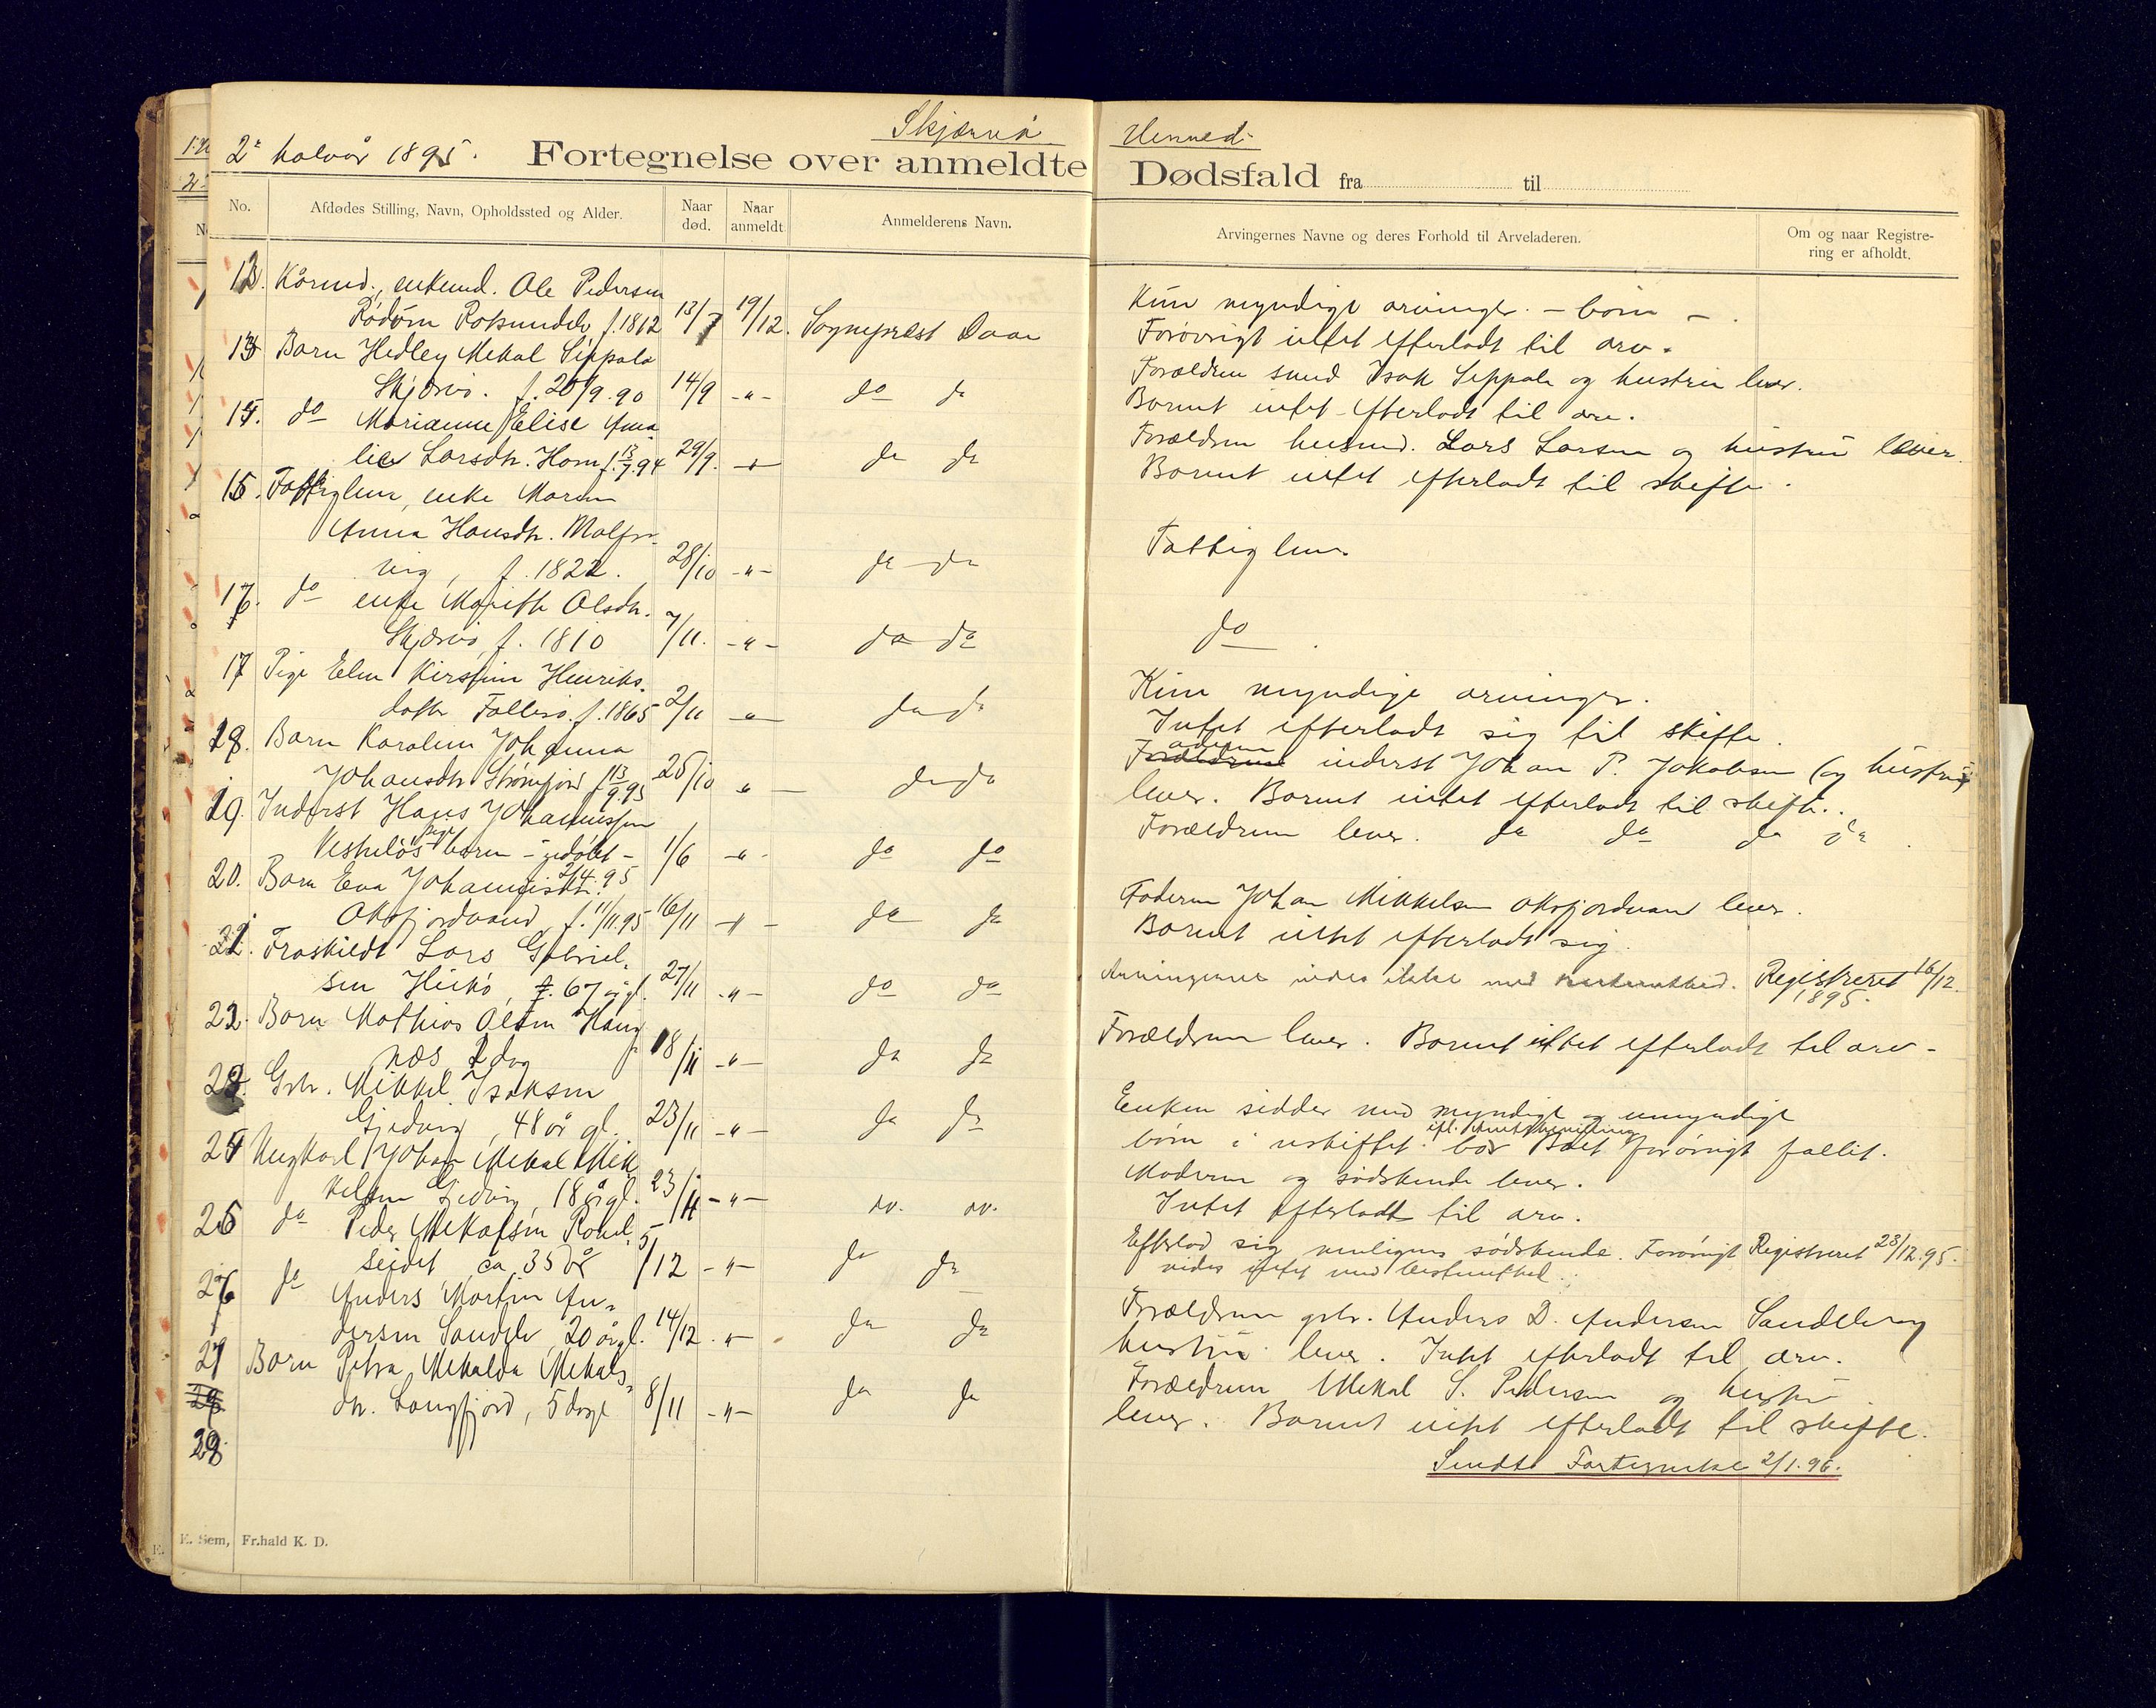 Skjærvø
Herred.
2det halvår 1895.
Fortegnelse over anmeldte Dødsfald fra til
No.
Afdødes Stilling, Navn, Opholdssted og Alder.
Naar død.
Naar anmeldt
Anmelderens Navn.
Arvingernes Navne og deres Forhold til Arveladeren.
Om og naar Registrering er afholdt.
12. Kårmd., enkemd. Ole Pedersen
f. 1812 13/7 19/12. Sogneprest Daae
Kun myndige arvinger. – børn – .
Forøvrigt intet efterladt til arv.
13 Barn Hedley Mekal Seppala
Skjærvø. f. 20/9.90 14/9 -"- do do
Forældrene smed Isak Seppala og hustru lever.
Barnet intet efterladt til arv.
14. do Marianne Elise Ama-
lie Larsdtr. Ham f. 13/7.94 29/9. -"- do do
Forældrene husmd. Lars Larsen og hustru lever.
Barnet intet efterladt til skifte.
15. Fattiglem, enke Maren
Anna Hansdtr.
vig, f. 1822. 28/10 -"- do do
Fattiglem
16. do enke Marith Olsdtr.
Skjærvø, f. 1810 7/11. -"- do do
do .
17 Pige Elen Kirstine Henriks-
datter Follesø. f. 1865 2/11 -"- do do
Kun myndige arvinger.
Intet efterladt sig til skifte.
18. Barn Karoline Johanna
Johansdtr. Strømfjord f. 13/9.95 25/10 -"- do do
inderst Johan P. Jakobsen (og hustru)
lever. Barnet intet efterladt til skifte.
19. Inderst Hans Johannessens
barn - udøbt - 1/6 -"- do do
2/4.95
Forældrene lever. do do do do.
20. Barn Eva Johannesdtr.
Oksfjordvand, f. 11/11.95 16/11 -"- do do
Faderen Johan Mikkelsen Oksfjordvand lever.
Barnet intet efterladt sig.
21. Fraskildt Lars Gabriel-
sen Hukø, 67 år gl. 27/11 -"- do do
Arvingerne vides ikke med bestemthed. Registreret 16/12
1895.
22. Barn Mathias Olsen Haug-
næs 1 dag 18/11 -"- do do
Forældrene lever. Barnet intet efterladt til arv -
23. Gbr. Mikkel Isaksen
Gjedvig, 48 år gl. 23/11 -"- do do
Enken sidder med myndige og umyndige
børn i uskiftet bo. Boet forøvrigt fallit.
24 Ungkarl Johan Mekal Mik-
kelsen Gjedvig, 18 årgl. 23/11 -"- do. do.
Moderen og sødskende lever.
Intet efterladt til arv.
25 do Peder Mekalsen
seidet, ca. 35 år 5/12 -"- do do
Efterlod sig søskende. Forøvrigt Registreret 23/12.95.
vides intet med bestemthed.
26 do Anders Martin An-
dersen Sandelv, 20 årgl. 14/12 . -"- do do
Forældrene gbr. Anders D. Andersen Sandelv og
hustru lever. Intet efterladt til arv.
27 Barn Petra Mekalda Mekals-
dtr. Langfjord, 5 dage 8/11 -"- do do
Forældrene Mekal S. Pedersen og hustru
lever. Barnet intet efterladt til skifte.
28
Sendt Fortegnelse 2/1.96.
E. Sem, Fr.hald K. D.